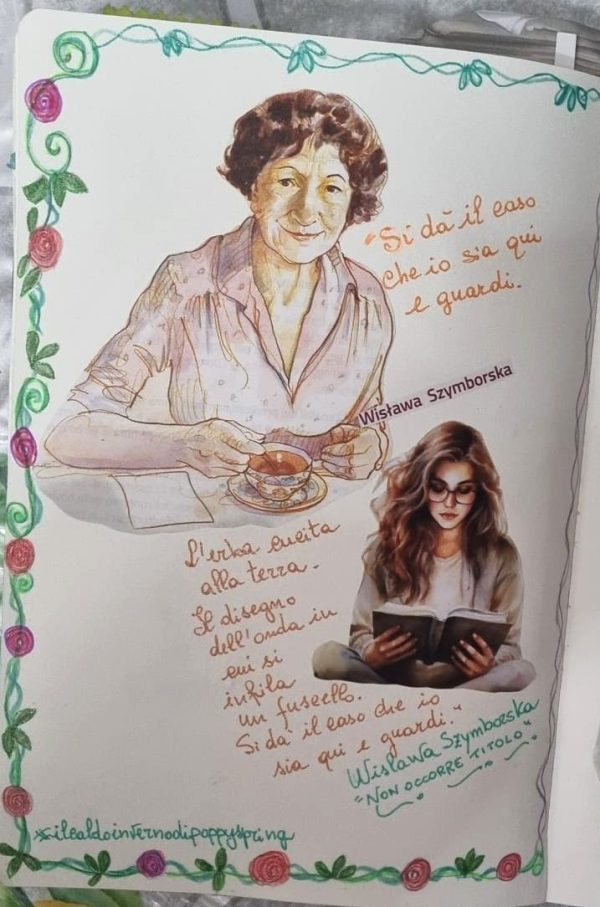 "Si dà il caso
che io sia qui
e guardi.
Wisława Szymborska
L'erba cucita
alla terra.
Il disegno
dell'onda in
cui si
infila
un fuscello.
Si dà il caso che io
sia qui e guardi."
Wisława Szymborska
"NON OCCORRE TITOLO"
#ilcaldoinfernodipoppyspring